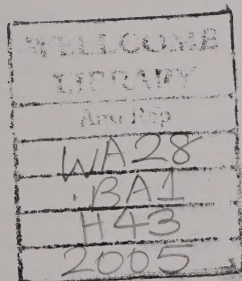 WELLCOME
LIBRARY
Ann Rep
WA28
.BA1
H43
2005